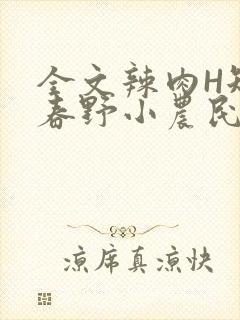 全文辣肉H短
春野小农民
凉席真凉快